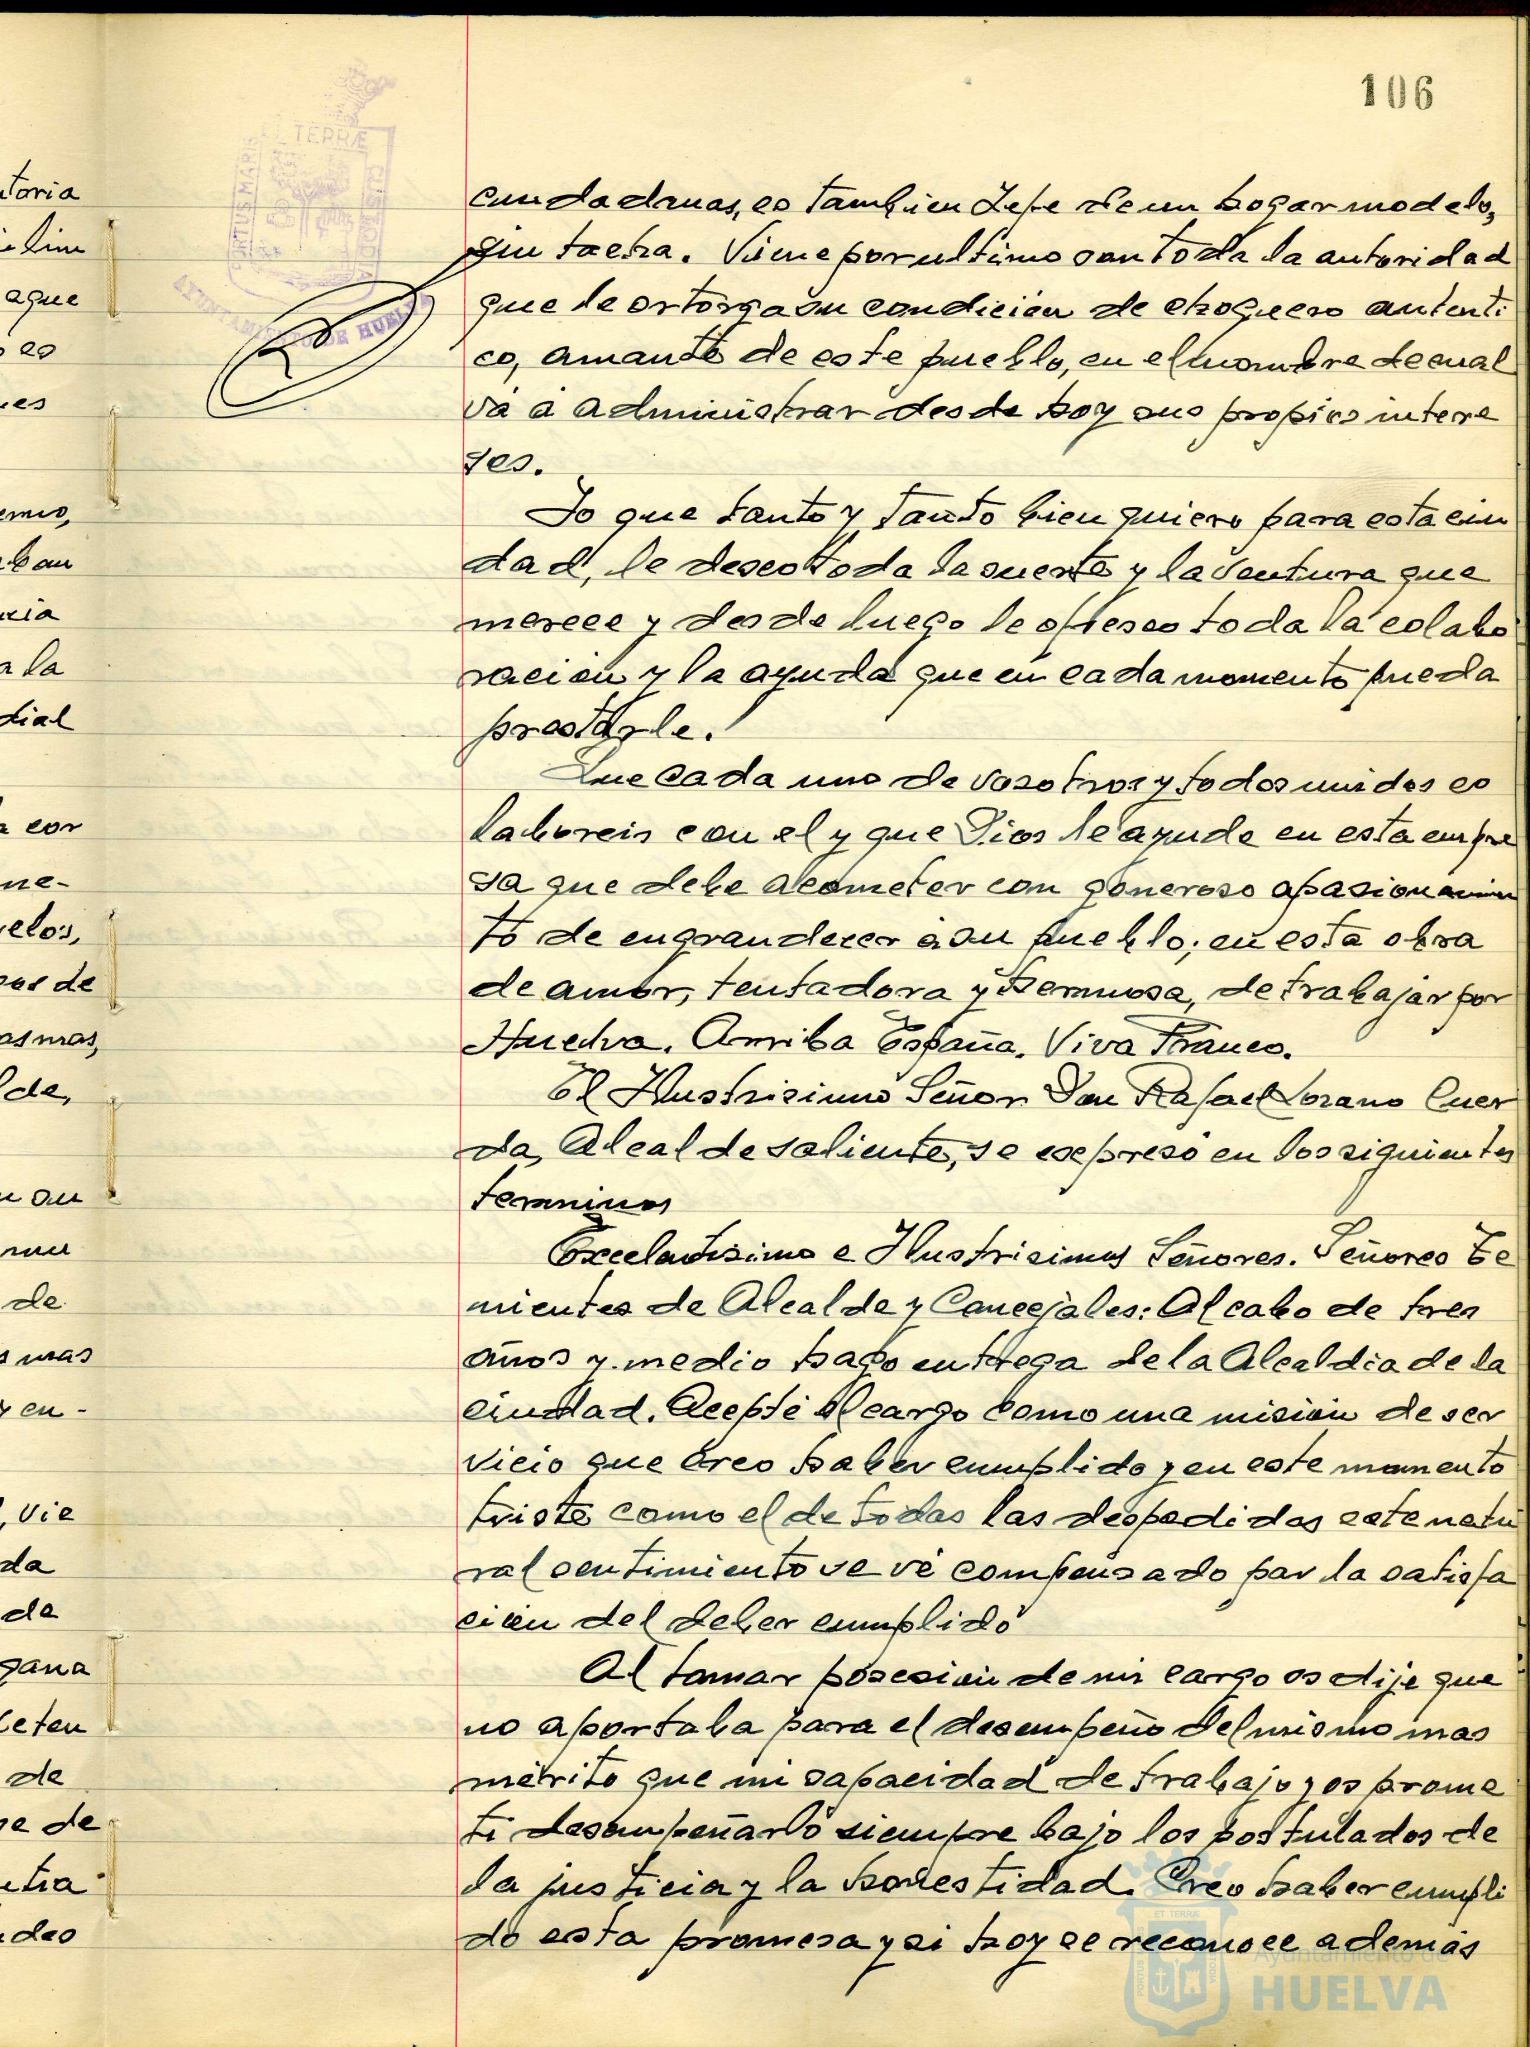 106
PORTUS MARIS ET TERRÆ CUSTODIA
AYUNTAMIENTO DE HUELVA
ciudadanas, es tambien Jefe de un hogar modelo,
sin tacha. Viene por ultimo con toda la autoridad
que le ortorga su condición de choquero autenti
co, amante de este pueblo, en el nombre de cual
vá á administrar desde hoy sus propios intere
ses.
Yo que tanto y tanto bien quiero para esta ciu
dad, le deseo toda la suerte y la ventura que
merece y desde luego le ofresco toda la colabo
racion y la ayuda que en cada momento pueda
prestarle.
Que cada uno de vosotros y todos unidos co
laboreis con el y que Dios le ayude en esta empre
sa que debe acometer con generoso apasionamien
to de engrandecer á su pueblo; en esta obra
de amor, tentadora y hermosa, de trabajar por
Huelva. Arriba España. Viva Franco.
El Ilustrisimo Señor Don Rafael Lozano Cuer
da, Alcalde saliente, se expresó en los siguientes
terminos
Excelentisimo e Ilustrisimos Señores. Señores Te
nientes de Alcalde y Concejales: Al cabo de tres
años y medio hago entrega de la Alcaldia de la
ciudad. Acepté el cargo como una misión de ser
vicio que creo haber cumplido y en este momento
triste como el de todas las despedidas este natu
ral sentimiento se vé compensado por la satisfa
ción del deber cumplido
Al tomar posesión de mi cargo os dije que
no aportaba para el desempeño del mismo mas
mérito que mi capacidad de trabajo y os prome
ti desempeñarlo siempre bajo los postulados de
la justicia y la honestidad. Creo haber cumpli
do esta promesa y si hoy se reconoce además
Ayuntamiento de
HUELVA